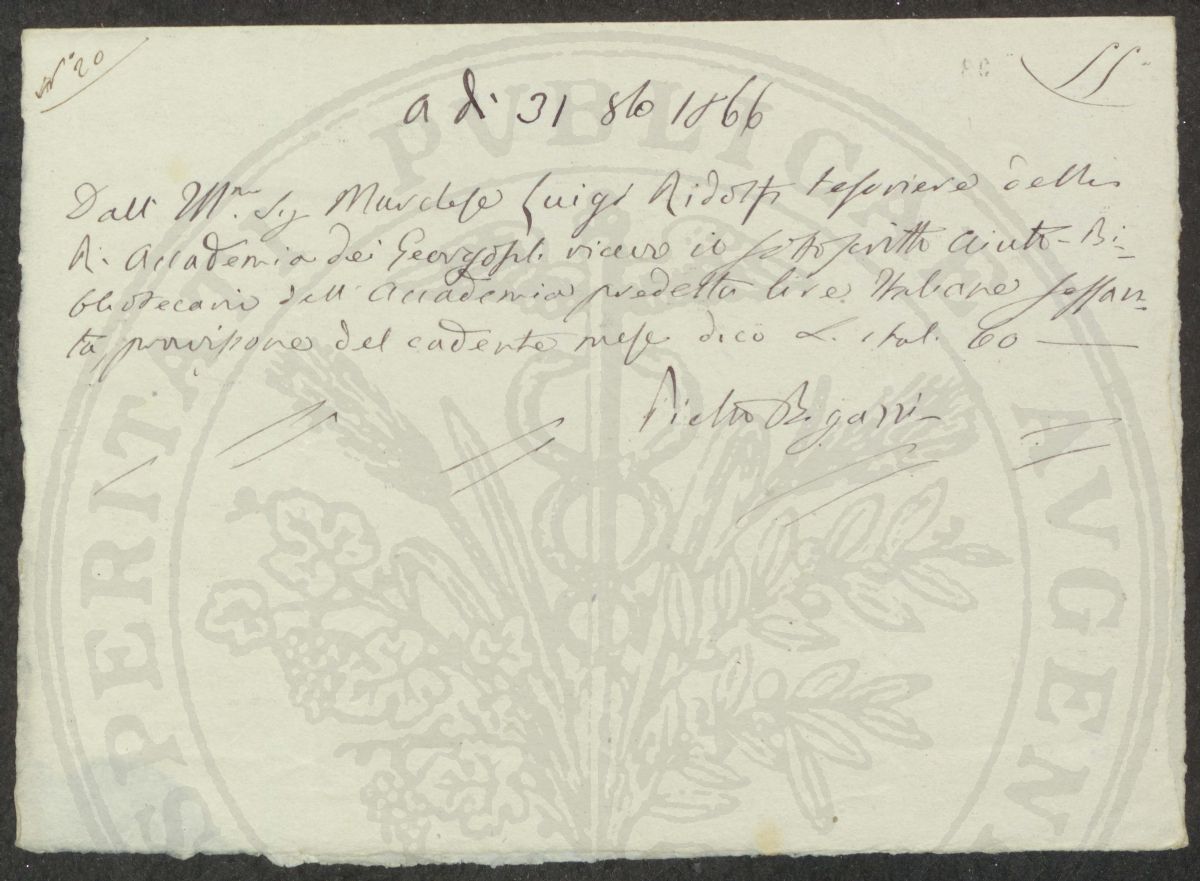 N° 20
55
a dì 31 8bre 1866
Dall' Ill.mo Sig Marchese Luigi Ridolfi tesoriere della
R. Accademia dei Georgofili ricevo io sottoscritto aiuto-Bi-
bliotecario dell' Accademia predetta lire Italiane sessan-
ta, provvisione del cadente mese dico L. ital. 60
Pietro Bigazzi
PROSPERITATI PUBLICAE AVGEN